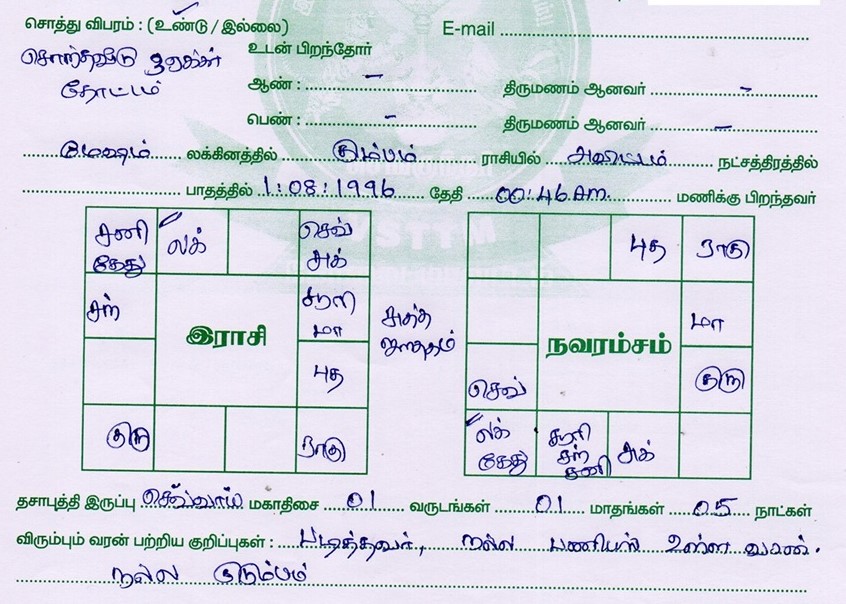 சொத்து விபரம் : (உண்டு / இல்லை)
E-mail
சொந்தவீடு
தோட்டம்
உடன் பிறந்தோர்
ஆண் : – திருமணம் ஆனவர் –
பெண் : – திருமணம் ஆனவர் –
மேஷம் லக்கினத்தில் கும்பம் ராசியில் அவிட்டம் நட்சத்திரத்தில்
பாதத்தில் 1:08:1996 தேதி 00:46 Am. மணிக்கு பிறந்தவர்
சனி கேது லக் செவ் சுக்
சந் சூரி மா
இராசி
புத
குரு ராகு
சுத்த ஜாதகம்
புத ராகு
மா
நவரம்சம்
செவ் குரு
லக் கேது சூரி சந் சனி சுக்
தசாபுத்தி இருப்பு செவ்வாய் மகாதிசை 01 வருடங்கள் 01 மாதங்கள் 05 நாட்கள்
விரும்பும் வரன் பற்றிய குறிப்புகள் : படித்தவர், நல்ல பணியில் உள்ள வரன்.
நல்ல குடும்பம்